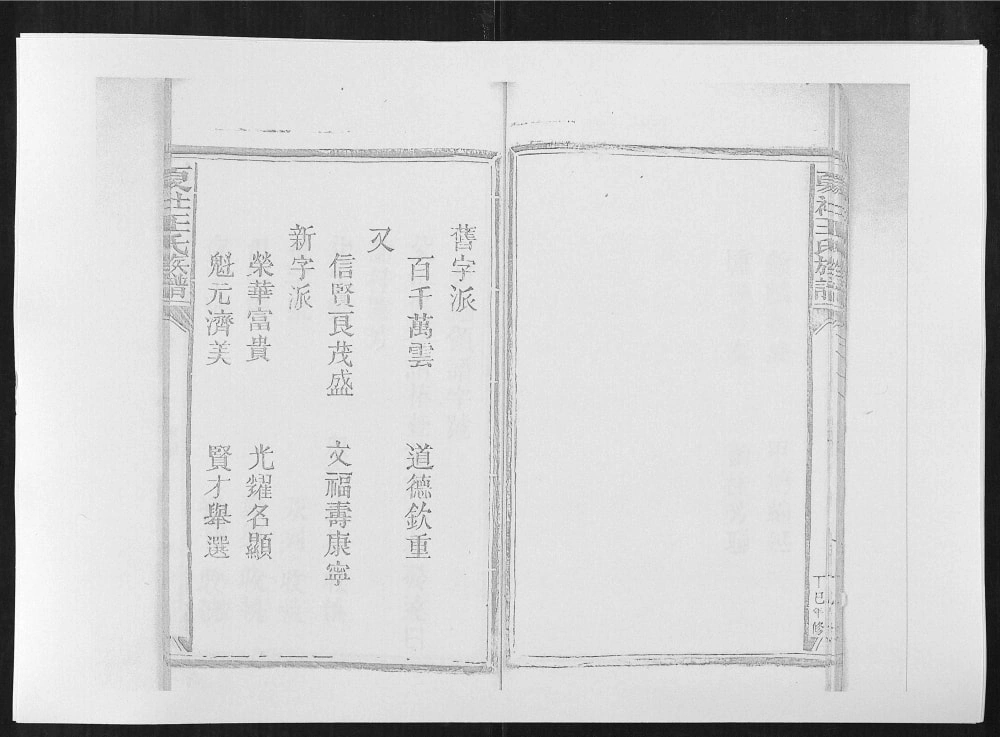 夏社王氏族譜
丁巳年修
舊字派
百千萬雲 道德欽重
又
信賢良茂盛 文福壽康寧
新字派
榮華富貴 光耀名顯
魁元濟美 賢才舉選
夏社王氏族譜